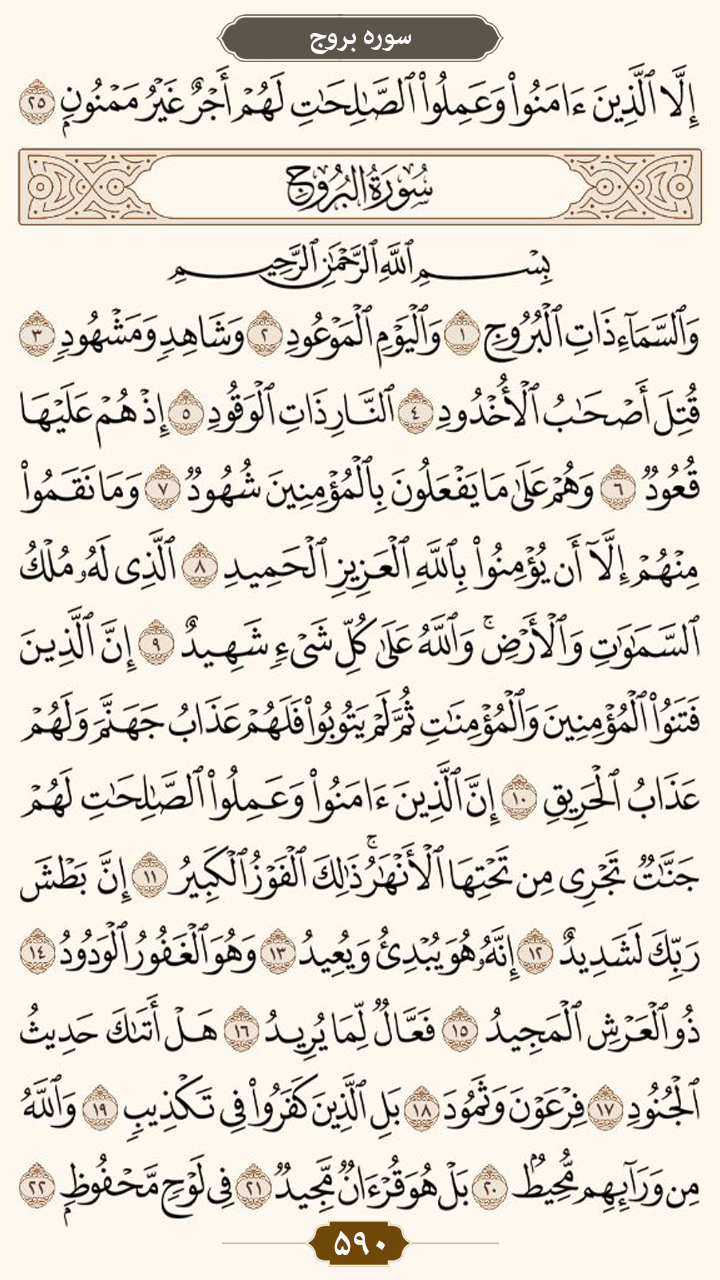 سوره بروج
إِلَّا ٱلَّذِينَ ءَامَنُوا۟ وَعَمِلُوا۟ ٱلصَّـٰلِحَـٰتِ لَهُمْ أَجْرٌ غَيْرُ مَمْنُونٍۭ ٢٥
سُورَةُ البُرُوجِ
بِسْمِ ٱللَّهِ ٱلرَّحْمَـٰنِ ٱلرَّحِيمِ
وَٱلسَّمَآءِ ذَاتِ ٱلْبُرُوجِ ١ وَٱلْيَوْمِ ٱلْمَوْعُودِ ٢ وَشَاهِدٍ وَمَشْهُودٍ ٣
قُتِلَ أَصْحَـٰبُ ٱلْأُخْدُودِ ٤ ٱلنَّارِ ذَاتِ ٱلْوَقُودِ ٥ إِذْ هُمْ عَلَيْهَا
قُعُودٌ ٦ وَهُمْ عَلَىٰ مَا يَفْعَلُونَ بِٱلْمُؤْمِنِينَ شُهُودٌ ٧ وَمَا نَقَمُوا۟
مِنْهُمْ إِلَّآ أَن يُؤْمِنُوا۟ بِٱللَّهِ ٱلْعَزِيزِ ٱلْحَمِيدِ ٨ ٱلَّذِى لَهُۥ مُلْكُ
ٱلسَّمَـٰوَٰتِ وَٱلْأَرْضِ ۚ وَٱللَّهُ عَلَىٰ كُلِّ شَىْءٍ شَهِيدٌ ٩ إِنَّ ٱلَّذِينَ
فَتَنُوا۟ ٱلْمُؤْمِنِينَ وَٱلْمُؤْمِنَـٰتِ ثُمَّ لَمْ يَتُوبُوا۟ فَلَهُمْ عَذَابُ جَهَنَّمَ وَلَهُمْ
عَذَابُ ٱلْحَرِيقِ ١٠ إِنَّ ٱلَّذِينَ ءَامَنُوا۟ وَعَمِلُوا۟ ٱلصَّـٰلِحَـٰتِ لَهُمْ
جَنَّـٰتٌ تَجْرِى مِن تَحْتِهَا ٱلْأَنْهَـٰرُ ۚ ذَٰلِكَ ٱلْفَوْزُ ٱلْكَبِيرُ ١١ إِنَّ بَطْشَ
رَبِّكَ لَشَدِيدٌ ١٢ إِنَّهُۥ هُوَ يُبْدِئُ وَيُعِيدُ ١٣ وَهُوَ ٱلْغَفُورُ ٱلْوَدُودُ ١٤
ذُو ٱلْعَرْشِ ٱلْمَجِيدُ ١٥ فَعَّالٌ لِّمَا يُرِيدُ ١٦ هَلْ أَتَىٰكَ حَدِيثُ
ٱلْجُنُودِ ١٧ فِرْعَوْنَ وَثَمُودَ ١٨ بَلِ ٱلَّذِينَ كَفَرُوا۟ فِى تَكْذِيبٍ ١٩ وَٱللَّهُ
مِن وَرَآئِهِم مُّحِيطٌۢ ٢٠ بَلْ هُوَ قُرْءَانٌ مَّجِيدٌ ٢١ فِى لَوْحٍ مَّحْفُوظٍۭ ٢٢
۵۹۰